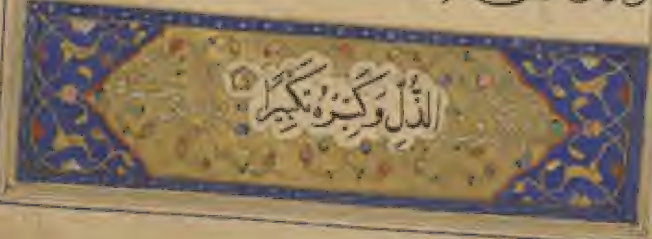 الذُّلِّ وَكَبِّرْهُ تَكْبِيرًا